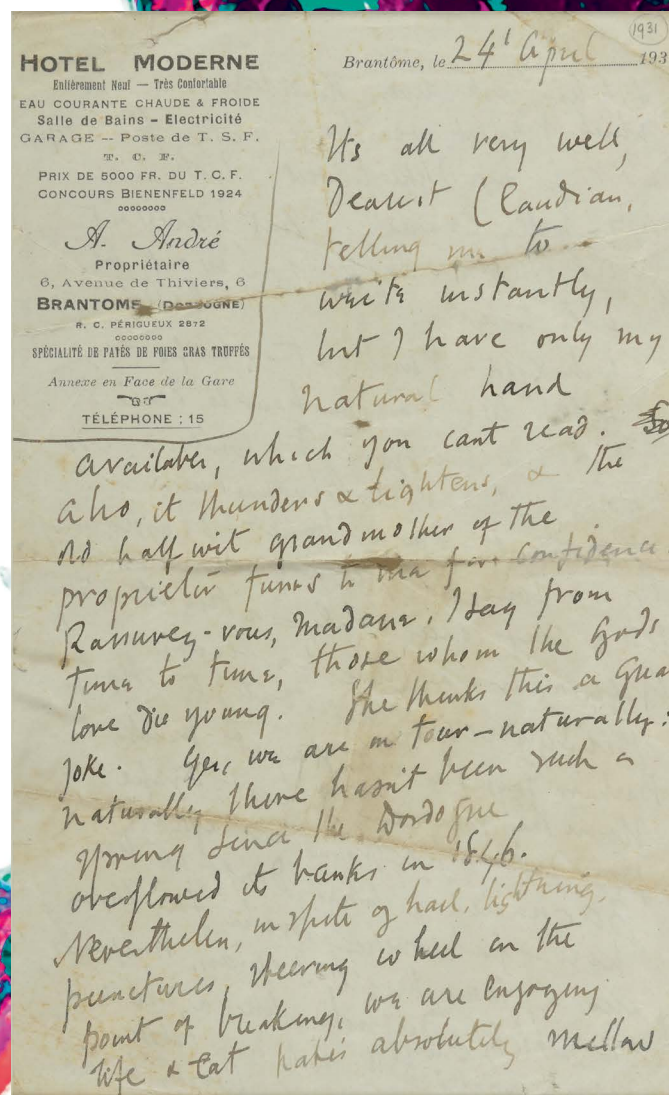 HOTEL MODERNE
Entièrement Neuf — Très Confortable
EAU COURANTE CHAUDE & FROIDE
Salle de Bains - Electricité
GARAGE -- Poste de T. S. F.
T. C. F.
PRIX DE 5000 FR. DU T. C. F.
CONCOURS BIENENFELD 1924
A. André
Propriétaire
6, Avenue de Thiviers, 6
BRANTOME (DORDOGNE)
R. C. PÉRIGUEUX 2872
SPÉCIALITÉ DE PATÉS DE FOIES GRAS TRUFFÉS
Annexe en Face de la Gare
TÉLÉPHONE : 15
1931
Brantôme, le 24t April 193
Its all very well,
Dearest Claudian,
telling me to
write instantly,
but I have only my
natural hand
available, which you cant read. So
also, it thunders & lightens, & the
old half wit grandmother of the
proprietor turns to me for confidence
Rassurez-vous, Madame, I say from
time to time, those whom the Gods
love die young. She thinks this a
joke. Yes, we are on tour - naturally:
naturally there hasn't been such a
spring since the Dordogne
overflowed its banks in 1846.
Nevertheless, in spite of hail, lightning,
punctures, steering wheel on the
point of breaking, we are enjoying
life & eat patés absolutely mellow